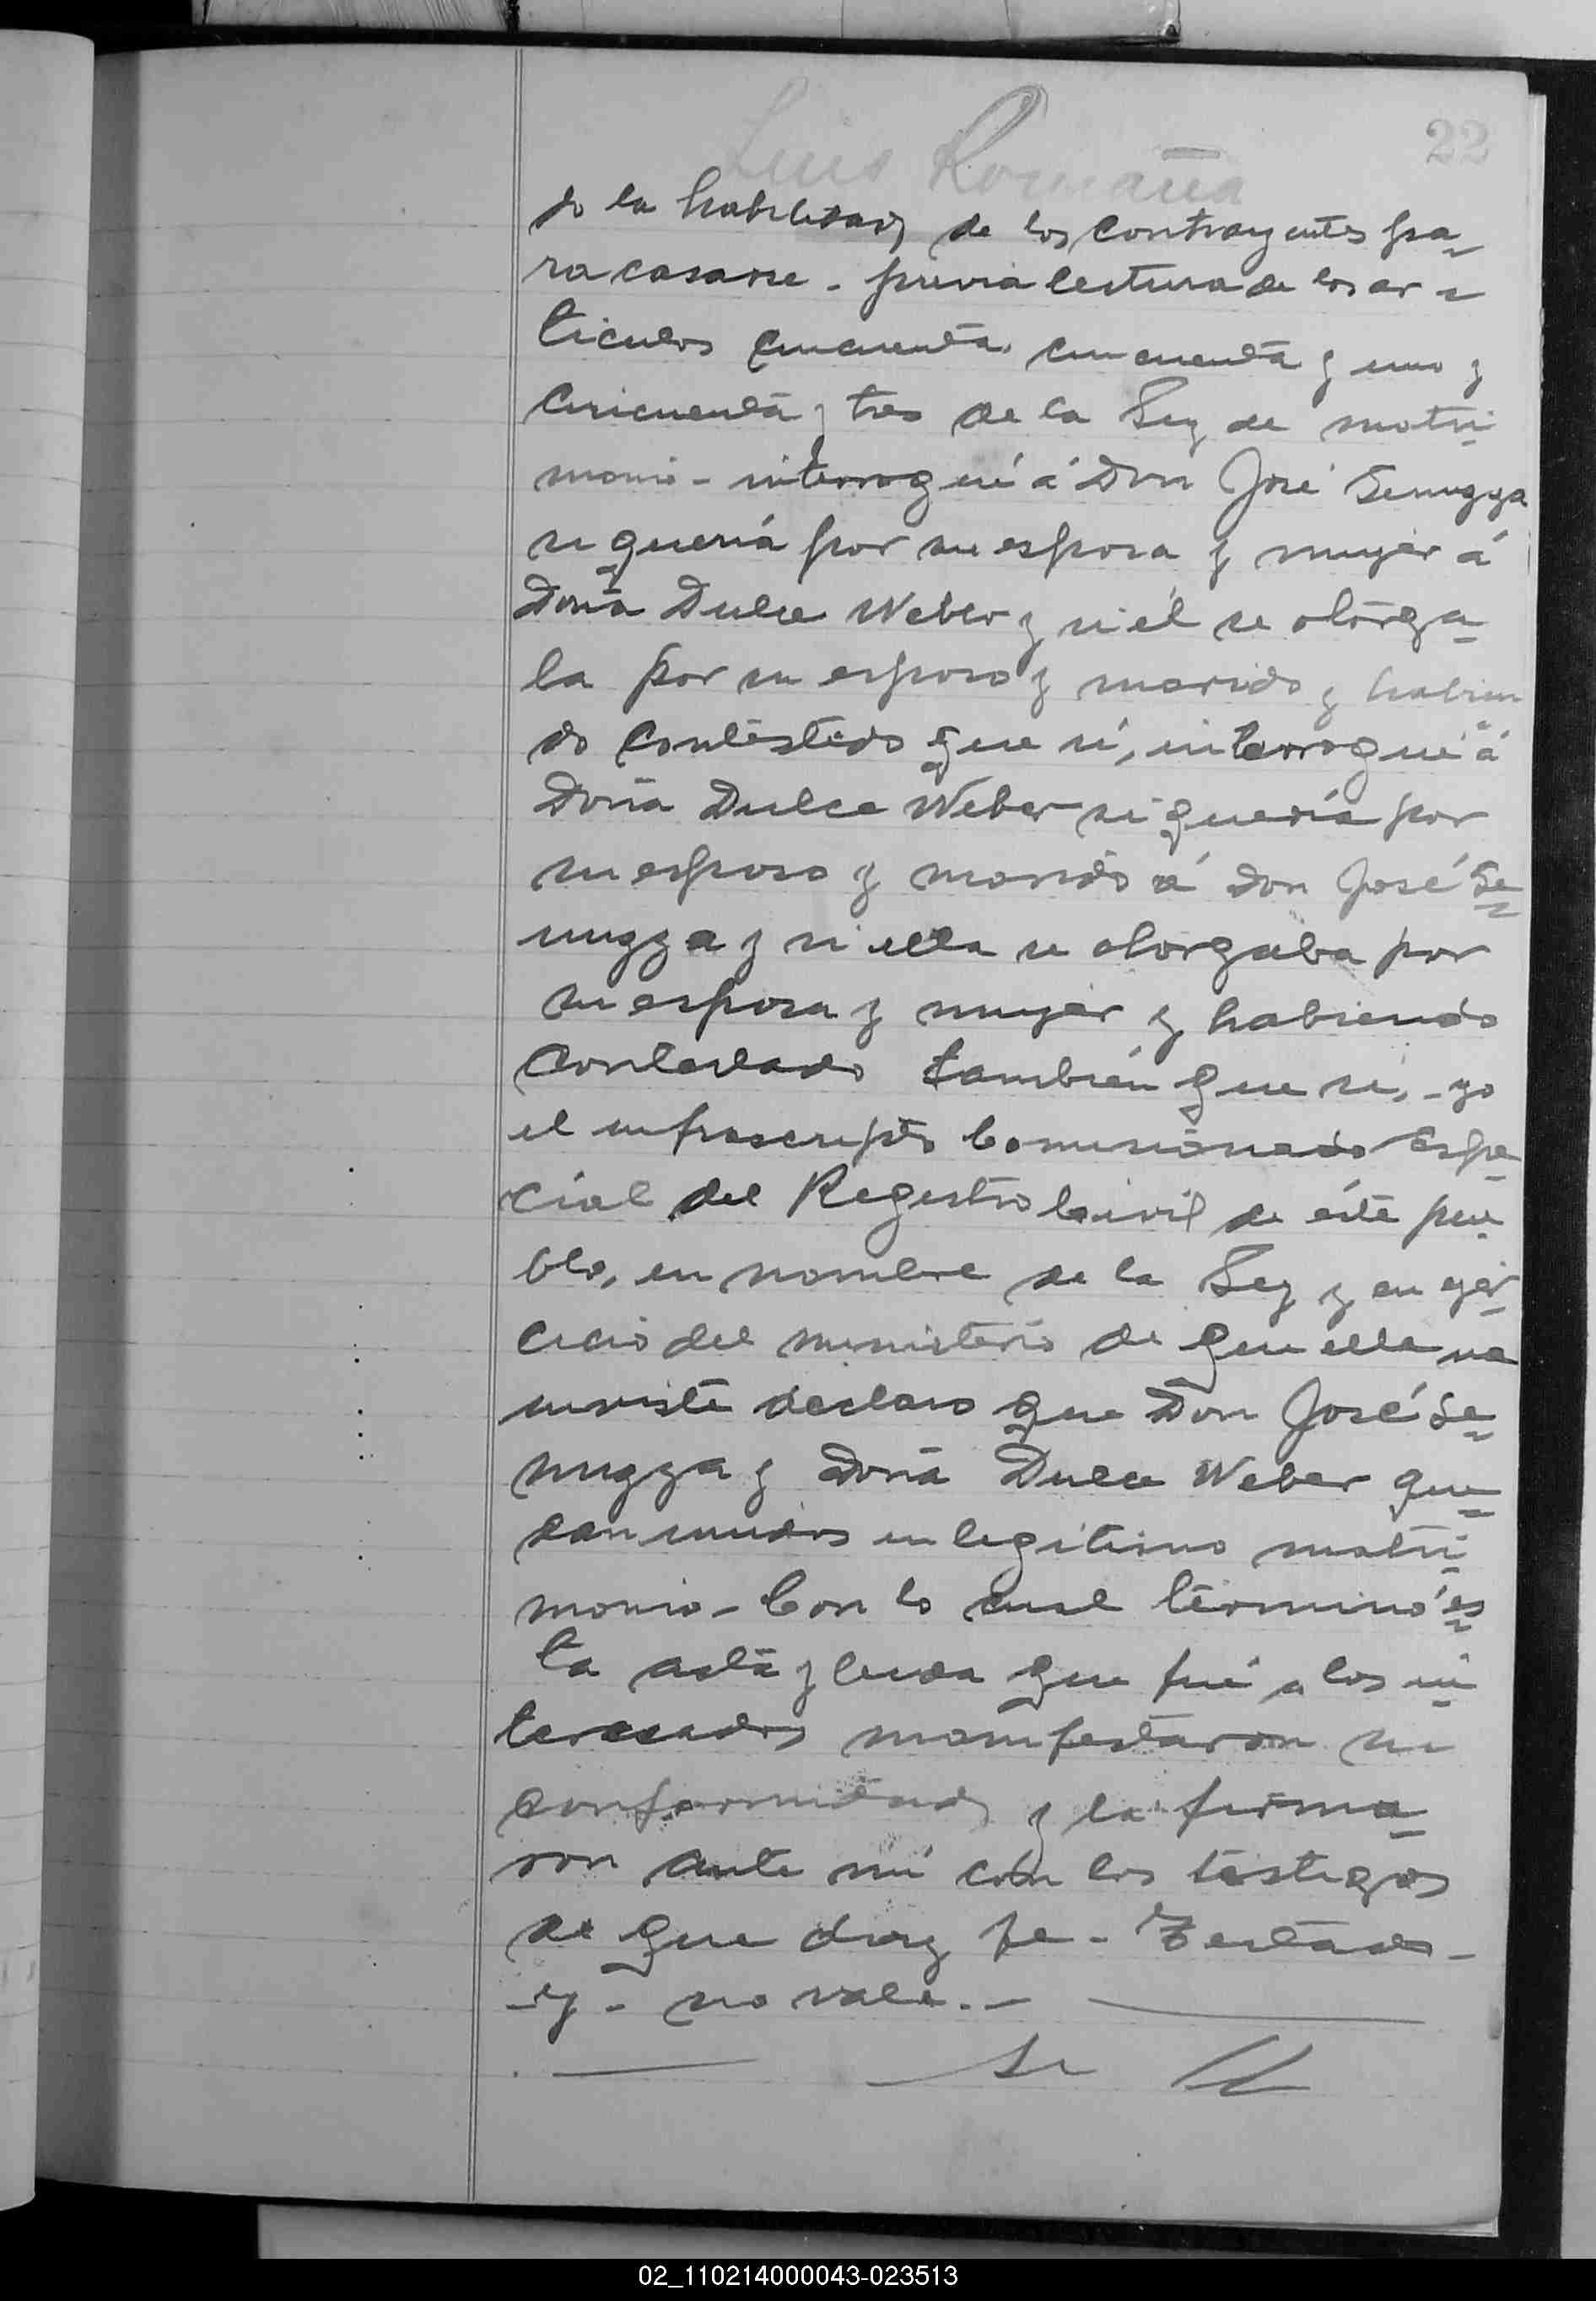 Luis Romaña
22
jo la habilidad de los contrayentes pa-
ra casarse - previa lectura de los ar-
ticulos cincuenta, cincuenta y uno y
cincuenta y tres de la Ley de matri-
monio - interrogué á Don José Senugga
si quería por su esposa y mujer á
Doña Dulce Weber y si él se otorga-
ba por su esposo y marido y habien
do contestado que sí, interrogué á
Doña Dulce Weber si quería por
su esposo y marido á Don José Se-
nugga y si ella se otorgaba por
su esposa y mujer y habiendo
contestado también que si, - yo
el infrascripto Comisionado Espe-
cial del Registro Civil de éste pue-
blo, en nombre de la Ley y en ejer-
cicio del ministerio de que ella me
inviste declaro que Don José Se-
nugga y Doña Dulce Weber que-
dan unidos en legitimo matri-
monio - Con lo cual términó es-
ta acta y leida que fué a los in-
teresados manifestaron su
conformidad y la firma-
ron ante mí con los testigos
de que doy fe - Testado -
- y - no vale. -